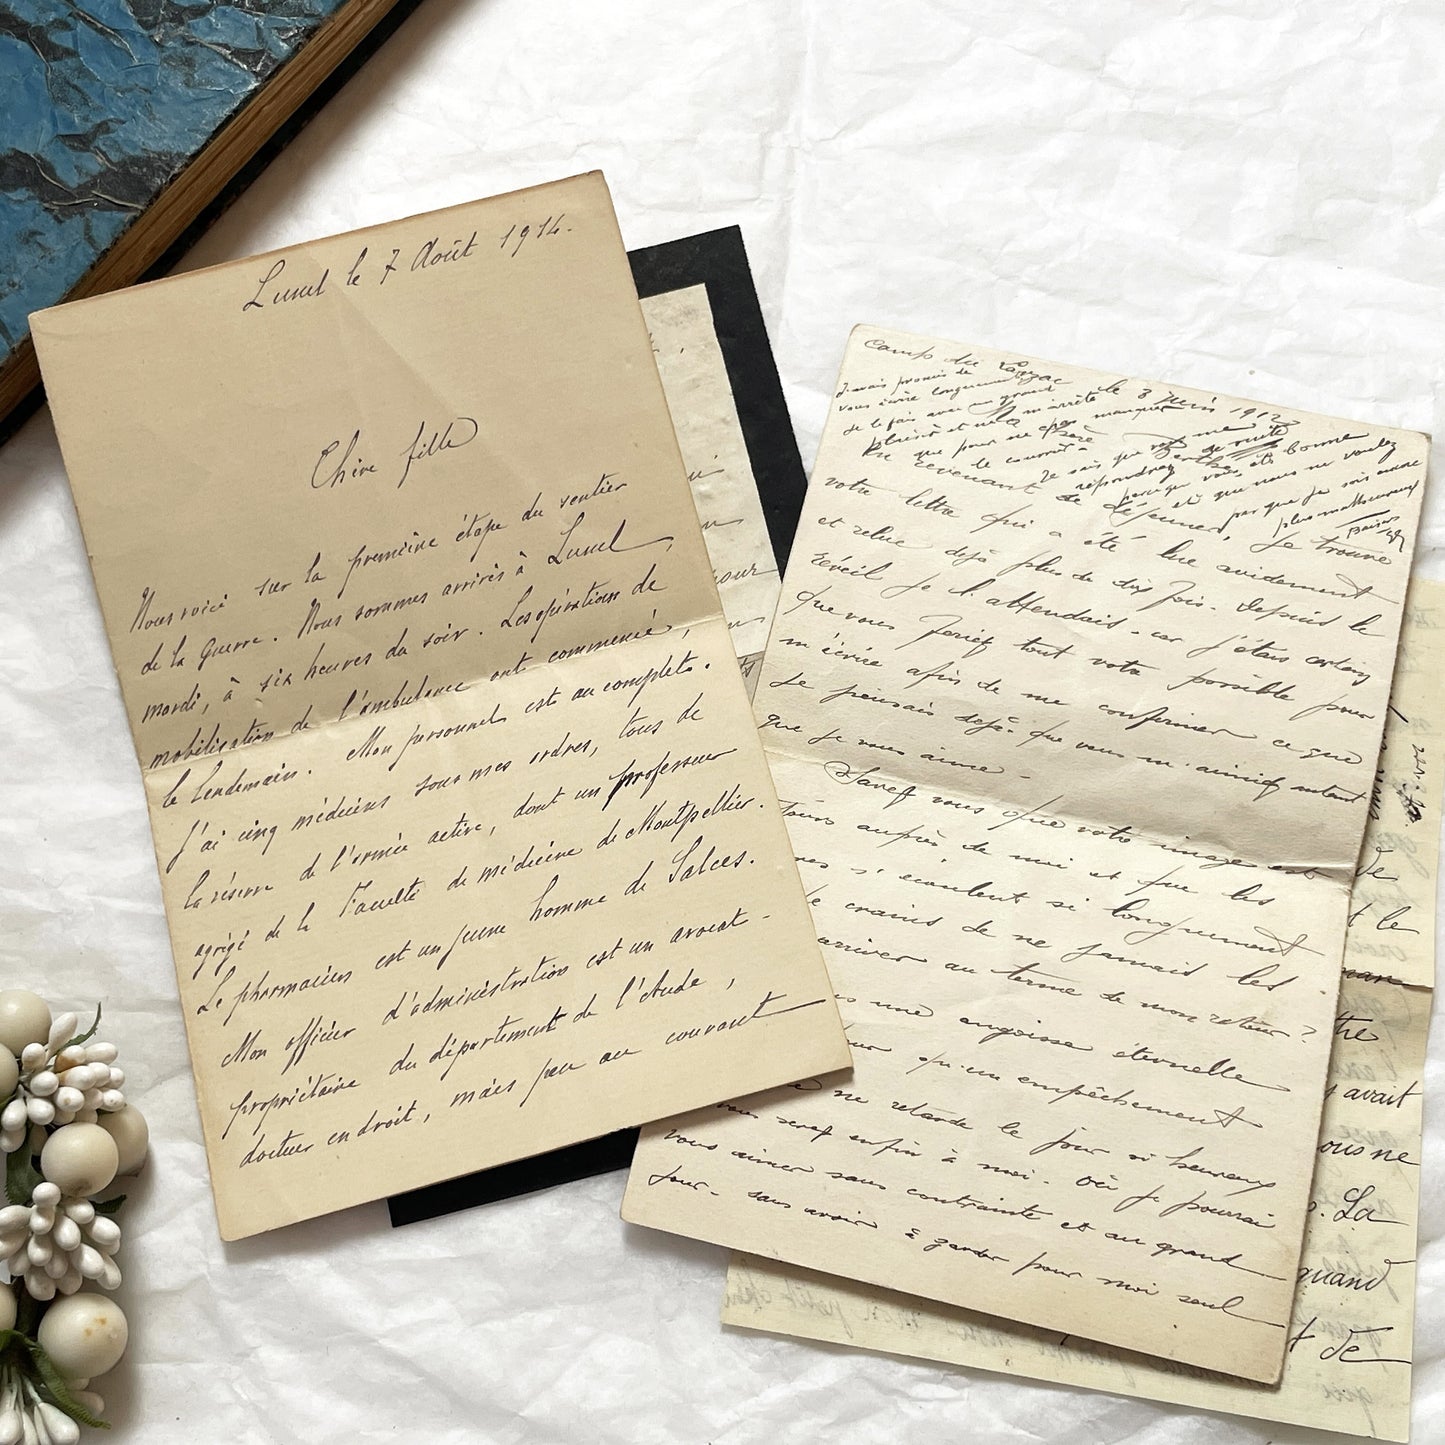 Lunel le 7 Août 1914.
Chère fille
Nous voici sur la première étape du sentier
de la Guerre. Nous sommes arrivés à Lunel,
mardi, à six heures du soir. Les opérations de
mobilisation de l'ambulance ont commencé,
le lendemain. Mon personnel est au complet.
J'ai cinq médecins sous mes ordres, tous de
la réserve de l'armée active, dont un professeur
agrégé de la Faculté de médecine de Montpellier.
Le pharmacien est un jeune homme de Salces.
Mon officier d'administration est un avocat-
propriétaire du département de l'Aude,
docteur en droit, mais peu au courant
Camp du Larzac le 3 juin 1912
J'avais promis de
vous écrire longuement
je le fais avec un grand
plaisir et m'arrête
que pour ne pas manquer
le courrier
Je sais que vous me
répondrez de suite
parce que vous êtes bonne
et que vous ne voulez
pas que je sois encore
plus malheureux
En revenant de déjeuner, je trouve
votre lettre qui a été lue avidement
et relue déjà plus de dix fois. Depuis le
réveil je l'attendais, car j'étais certain
que vous feriez tout votre possible pour
m'écrire afin de me confirmer ce que
je pensais déjà. que vous m'aimiez autant
que je vous aime.
Savez vous que votre image est
tours auprès de moi et que les
res s'écoulent si longuement
je crains de ne jamais les
arriver au terme de mon retour?
s une angoisse éternelle
qu'un empêchement
ne retarde le jour si heureux
vous serez enfin à moi. où je pourrai
vous aimer sans contrainte et au grand
jour. sans avoir à garder pour moi seul
our
de
t le
tre
s avait
ous ne
. La
quand
t de